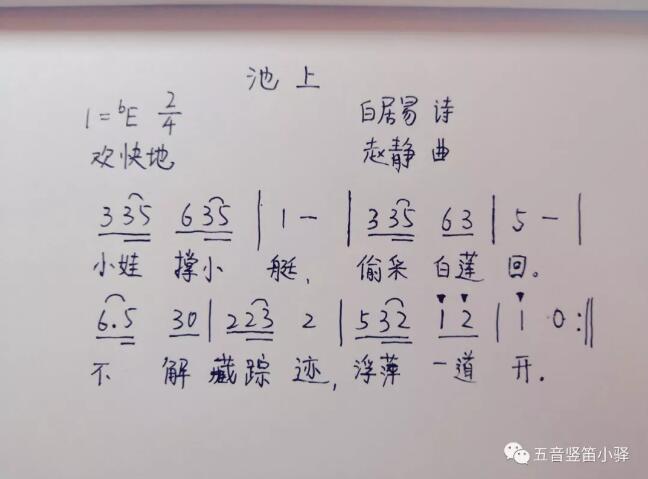 池上
1=♭E 2/4 白居易 诗
欢快地 赵静 曲
3 35 6 35 | 1 - | 3 35 63 | 5 - |
小娃 撑小 艇, 偷采 白莲 回。
6.5 30 | 2 23 2 | 5 32 1̇ 2̇ | 1̇ 0 :||
不 解 藏踪 迹, 浮萍 一道 开.
五音竖笛小驿